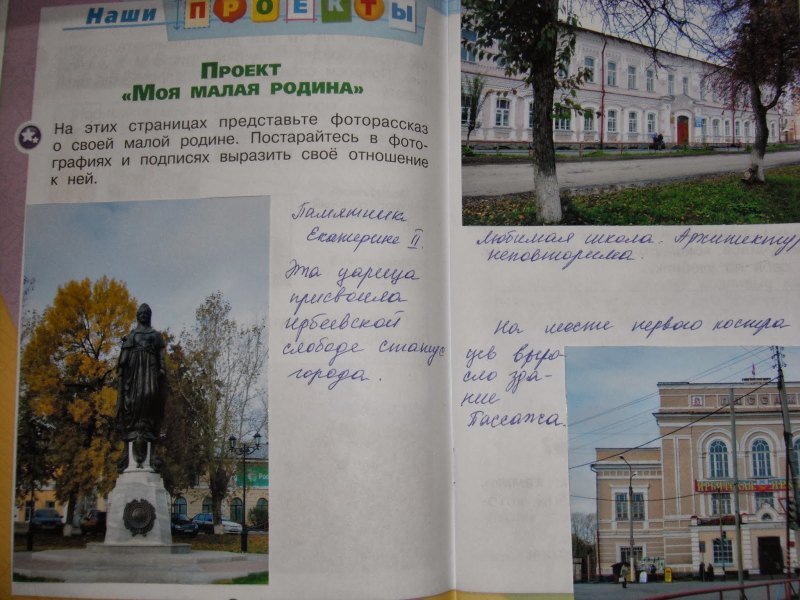 Наши ПРОЕКТЫ
ПРОЕКТ
«МОЯ МАЛАЯ РОДИНА»
На этих страницах представьте фоторассказ
о своей малой родине. Постарайтесь в фото-
графиях и подписях выразить своё отношение
к ней.
Памятник
Екатерине II.
Эта царица
присвоила
Ирбеевской
слободе статус
города.
Любимая школа. Архитектур
неповторима.
На месте первого костра
цев выро
сло зда-
ние
Пассажа.